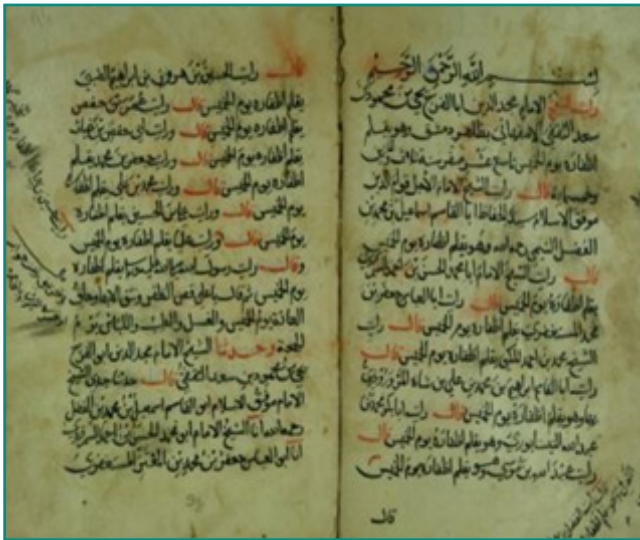 بسم الله الرحمن الرحيم
رايت الشيخ الامام مجد الدين ابا الفرج يحيى بن محمود بن
سعد الثقفي الاصفهاني بظاهر دمشق وهو يقلم
اظفاره يوم الخميس تاسع عشر صفر سنة
وخمسمائة قال رايت الشيخ الامام الاجل قوام الدين
موفق الاسلام سيد الحفاظ ابا القاسم اسماعيل بن محمد بن
الفضل التيمي رحمه الله وهو يقلم اظفاره يوم الخميس
قال رايت الشيخ الامام ابا محمد الحسن بن احمد السمرقندي
يقلم اظفاره يوم الخميس قال رايت ابا العباس جعفر بن
محمد المستغفري يقلم اظفاره يوم الخميس قال رايت
الشيخ محمد بن احمد المكي يقلم اظفاره يوم الخميس قال
رايت ابا القاسم ابراهيم بن محمد بن علي بن شاه المروروذي
وهو يقلم اظفاره يوم الخميس قال رايت ابا بكر محمد بن
عبد الله النيسابوري وهو يقلم اظفاره يوم الخميس قال
رايت عبد الله بن موسى وهو يقلم اظفاره يوم الخميس
قال
قال رايت الحسين بن هرون بن ابراهيم الضبي
يقلم اظفاره يوم الخميس قال رايت عمر بن حفص
يقلم اظفاره يوم الخميس قال رايت ابي حفص بن غياث
يقلم اظفاره يوم الخميس قال رايت جعفر بن محمد يقلم
اظفاره يوم الخميس قال رايت محمد بن علي يقلم اظفاره
يوم الخميس قال رايت علي بن الحسين يقلم اظفاره
يوم الخميس قال رايت عليا يقلم اظفاره يوم الخميس
وقال رايت رسول الله صلى الله عليه وسلم يقلم اظفاره
يوم الخميس ثم قال يا علي قص الظفر ونتف الابط وحلق
العانة يوم الخميس والغسل والطيب واللباس يوم
الجمعة وحدثنا الشيخ الامام مجد الدين ابو الفرج
يحيى بن محمود بن سعد الثقفي قال حدثنا جدي الشيخ
الامام موفق الاسلام ابو القاسم اسمعيل بن محمد بن الفضل
رحمه الله انا الشيخ الامام ابو محمد الحسن بن احمد السمرقندي
انا ابو العباس جعفر بن محمد بن المعتز المستغفري